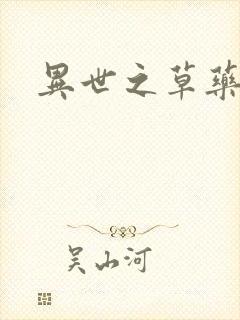 異世之草藥
吴山河